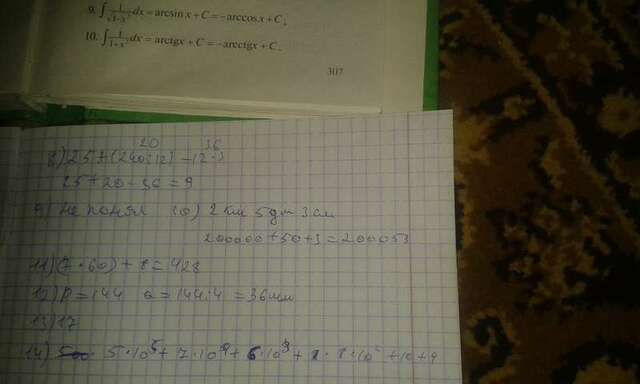 9. ∫ 1/√1-x² dx = arcsin x + C = -arccos x + C,
10. ∫ 1/1+x² dx = arctgx + C = -arcctgx + C.
307
20 36
8) 25+(240:12)-12·3
25+20-36=9
9) не понял 10) 2 км 5дм 3 см
200000+50+3=200053
11) (7·60)+8=428
12) P=144 a=144:4=36мм
13) 17
14) 5·10⁵+7·10⁴+6·10³+ +10+9